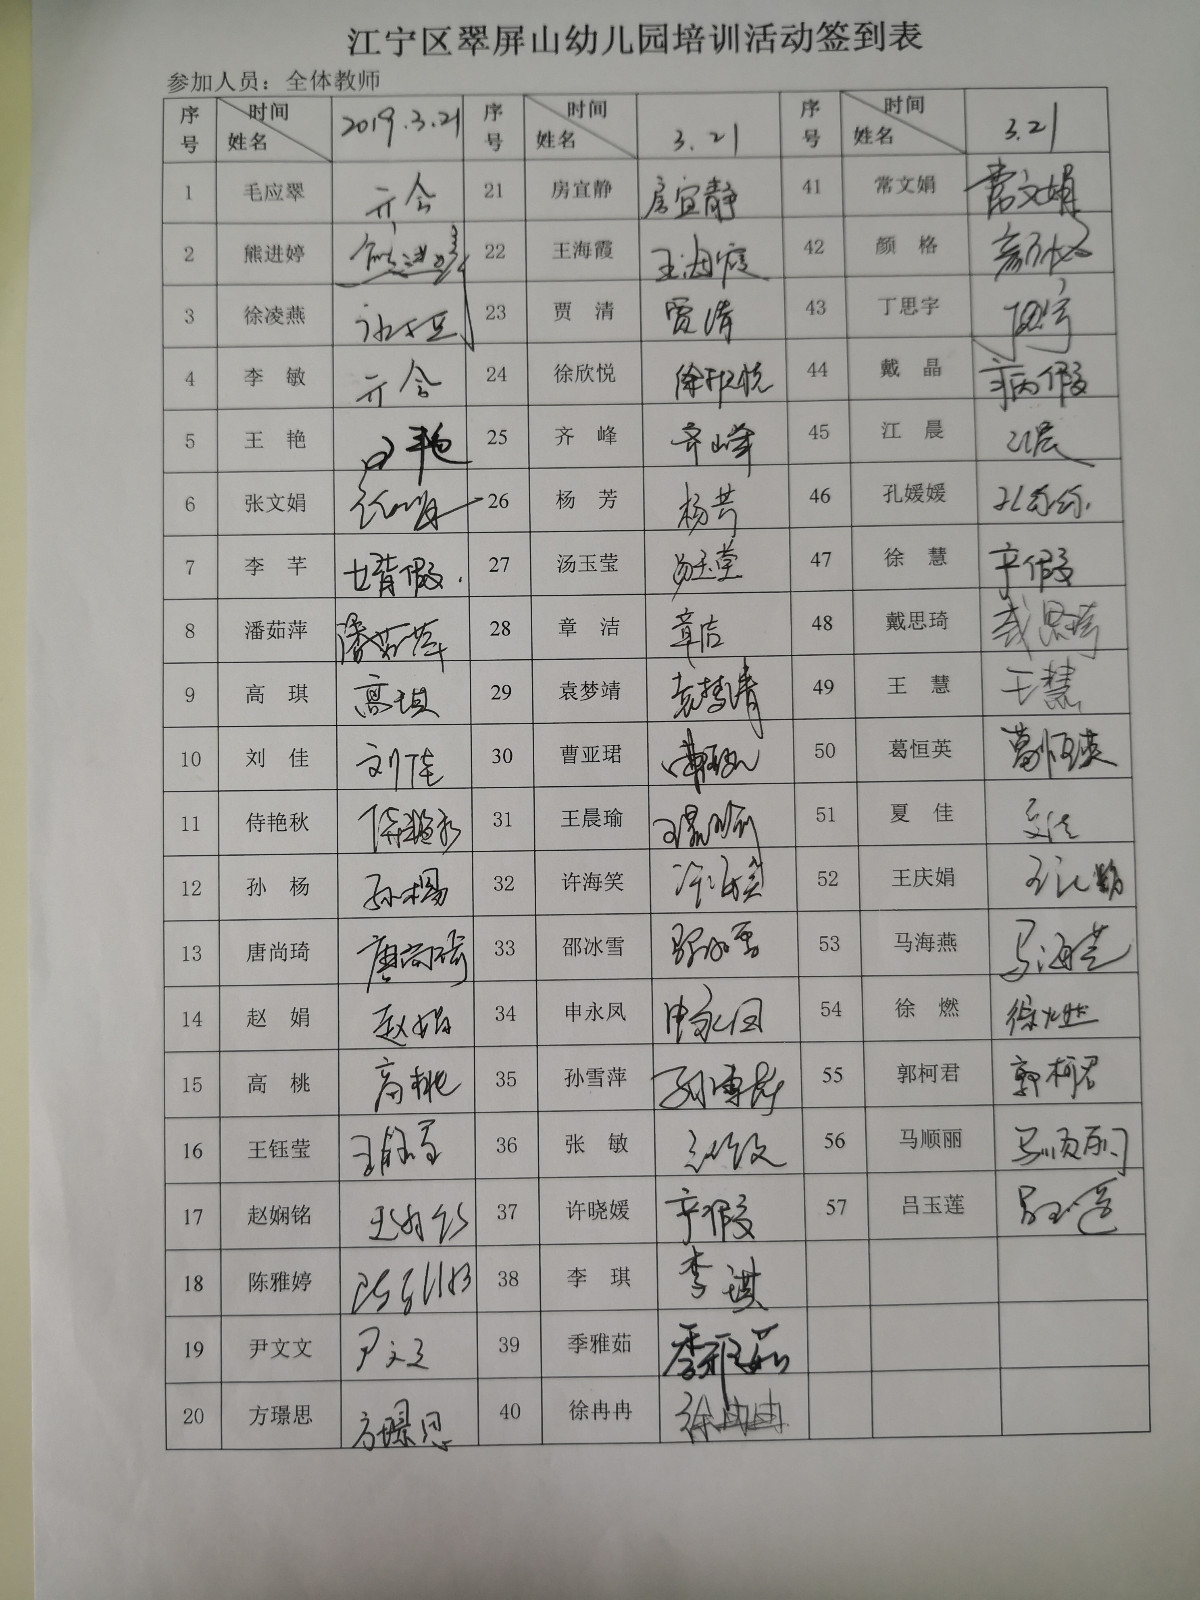 江宁区翠屏山幼儿园培训活动签到表
参加人员：全体教师
序号 时间 姓名 2019.3.21 序号 时间 姓名 3.21 序号 时间 姓名 3.21
1 毛应翠 开会 21 房宜静 房宜静 41 常文娟 常文娟
2 熊进婷 熊进婷 22 王海霞 王海霞 42 颜格 颜格
3 徐凌燕 23 贾清 贾清 43 丁思宇 丁思宇
4 李敏 开会 24 徐欣悦 徐欣悦 44 戴晶 病假
5 王艳 王艳 25 齐峰 齐峰 45 江晨 江晨
6 张文娟 26 杨芳 杨芳 46 孔媛媛 孔媛媛
7 李芊 婚假. 27 汤玉莹 汤玉莹 47 徐慧 产假
8 潘茹萍 潘茹萍 28 章洁 章洁 48 戴思琦 戴思琦
9 高琪 高琪 29 袁梦靖 袁梦靖 49 王慧 王慧
10 刘佳 刘佳 30 曹亚珺 曹亚珺 50 葛恒英 葛恒英
11 侍艳秋 侍艳秋 31 王晨瑜 王晨瑜 51 夏佳 夏佳
12 孙杨 孙杨 32 许海笑 许海笑 52 王庆娟 王庆娟
13 唐尚琦 唐尚琦 33 邵冰雪 邵冰雪 53 马海燕 马海燕
14 赵娟 赵娟 34 申永凤 申永凤 54 徐燃 徐燃
15 高桃 高桃 35 孙雪萍 孙雪萍 55 郭柯君 郭柯君
16 王钰莹 王钰莹 36 张敏 张敏 56 马顺丽 马顺丽
17 赵娴铭 37 许晓媛 产假 57 吕玉莲 吕玉莲
18 陈雅婷 陈雅婷 38 李琪 李琪
19 尹文文 尹文文 39 季雅茹 季雅茹
20 方璟思 方璟思 40 徐冉冉 徐冉冉